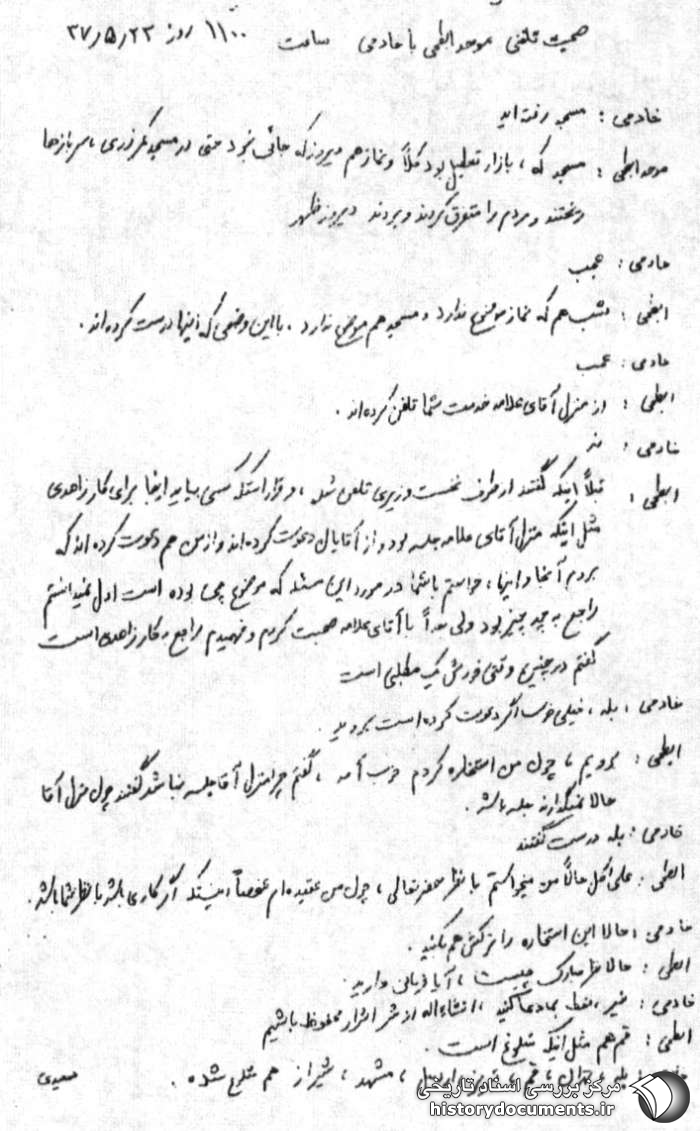 صحبت تلفنی موحد ابطحی با خادمی ساعت ۱۱۰۰ روز ۳۷٫۵٫۲۳
خادمی : مسجد رفته اید
موحد ابطحی : مسجد که ، بازار تعطیل بود کلاً و نماز هم دیروز که جائی نبود حتی در مسجد سربازها
ریختند و مردم را متفرق کردند و بردند دیروز ظهر
خادمی : عجب
ابطحی : شب هم که نماز موضوع ندارد ، مسجد هم موضوع ندارد . با این وضعی که اینها درست کرده اند .
خادمی : عجب
ابطحی : از منزل آقای علامه خدمت شما تلفن کرده اند .
خادمی : نه
ابطحی : قبلاً اینکه گفتند از طرف نخست وزیری تلفن شد ، و قرار است که کسی بیاید اینجا برای کار زاهدی
مثل اینکه منزل آقای علامه جلسه بود و از آقایان دعوت کرده اند و از من هم دعوت کرده اند که
بروم آنجا و اینها ، خواستم باشما در مورد این مسئله که موضوع چی بوده است اول نمیدانستم
راجع به چه چیز بود ولی بعداً با آقای علامه صحبت کردم و فهمیدم راجع به کار زاهدی است
گفتم در چنین وقتی خودش یک مطلبی است
خادمی : بله ، خیلی خوب اگر دعوت کرده است بروید .
ابطحی : برویم ، چون من استخاره کردم خوب آمد ، گفتم چرا منزل آقا جلسه نباشد گفتند چون منزل آقا
حالا نمیگذارند جلسه باشد .
خادمی : بله درست گفتند
ابطحی : علی ای حال حالا من میخواستم با نظر حضرتعالی ، چون من عقیده ام خصوصاً اینست که اگر کاری باشد با نظر شما باشد .
خادمی : حالا این استخاره را ترکش هم بکنید .
ابطحی : حالا نظر مبارک چیست ، آیا فرمانی دارید .
خادمی : خیر ، فقط بما دعا کنید ، انشاءاله از شر اشرار محفوظ باشیم
ابطحی : قم هم مثل اینکه شلوغ است .
بله ، تهران ، قم ، تبریز ، اردبیل ، مشهد ، شیراز هم شلوغ شده . سعیدی
مرکز بررسی اسناد تاریخی
historydocuments.ir